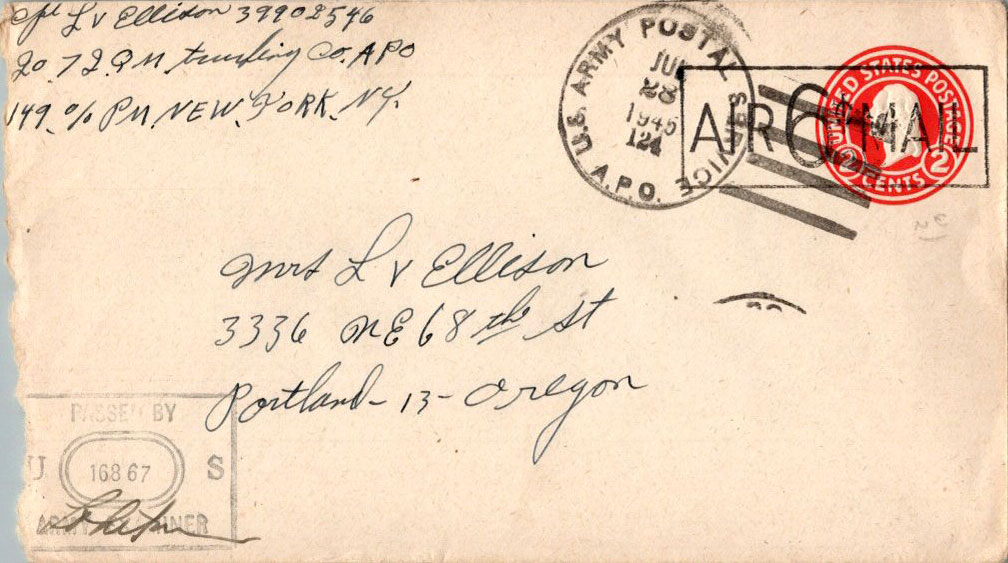 Cpl L V Ellison 39902546
Co. 72 Q M. trucking Co. APO
149. % P.M. NEW. YORK. N.Y.
U.S. ARMY POSTAL SERVICE
A.P.O.
JUL
28
1945
124
AIR 6¢ MAIL
UNITED STATES POSTAGE
2 CENTS 2
Mrs L V Ellison
3336 NE 68th St
Portland - 13 - Oregon
PASSED BY
U 16867 S
ARMY EXAMINER